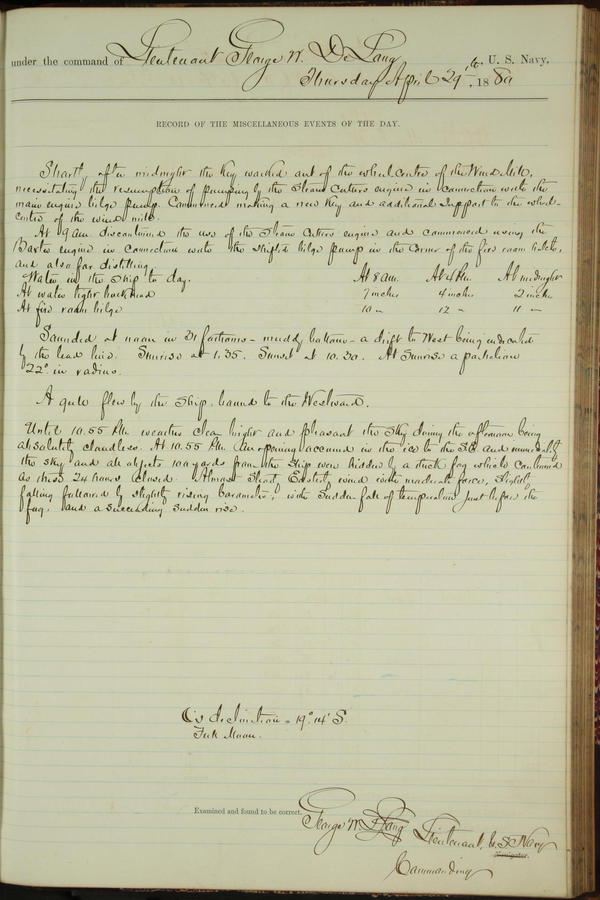 under the command of Lieutenant George W. De Long, U. S. Navy,
Thursday April 29th, 1880
RECORD OF THE MISCELLANEOUS EVENTS OF THE DAY.
Shortly after midnight the Key worked out of the wheel centre of the Wind Mill,
necessitating the resumption of pumping by the Steam Cutters engine in connection with the
main engine bilge pump. Commenced making a new Key and additional support to the wheel-
centre of the wind mill.
At 9 am discontinued the use of the Steam Cutters engine and commenced using the
Baxter engine in connection with the shifted bilge pump in the corner of the fire room hatch,
and also for distilling.
Water in the Ship to day. At 8 am. At 4 Pm. At midnight
At water tight bulkhead 7 inches 4 inches 2 inches
At fire room bilge 10 " 12 " 11 "
Sounded at noon in 31 fathoms - muddy bottom - a drift to West being indicated
by the lead line. Sunrise at 1.35. Sunset at 10.30. At Sunrise a parhelion
22° in radius.
A gull flew by the ship, bound to the Westward.
Until 10.55 Pm weather clear bright and pleasant the sky during the afternoon being
absolutely cloudless. At 10.55 Pm an opening occurred in the ice to the SE and immediately
the sky and all objects 100 yards from the ship were hidden by a thick fog which continued
as these 24 hours closed. Almost Steady Easterly wind with moderate force, Slightly
falling followed by slightly rising barometer, with sudden fall of temperature just before the
fog, and a succeeding sudden rise.
☾'s declination = 19° 14' S.
Full Moon.
Examined and found to be correct.
George W. De Long Lieutenant, U. S. Navy
Navigator.
Commanding